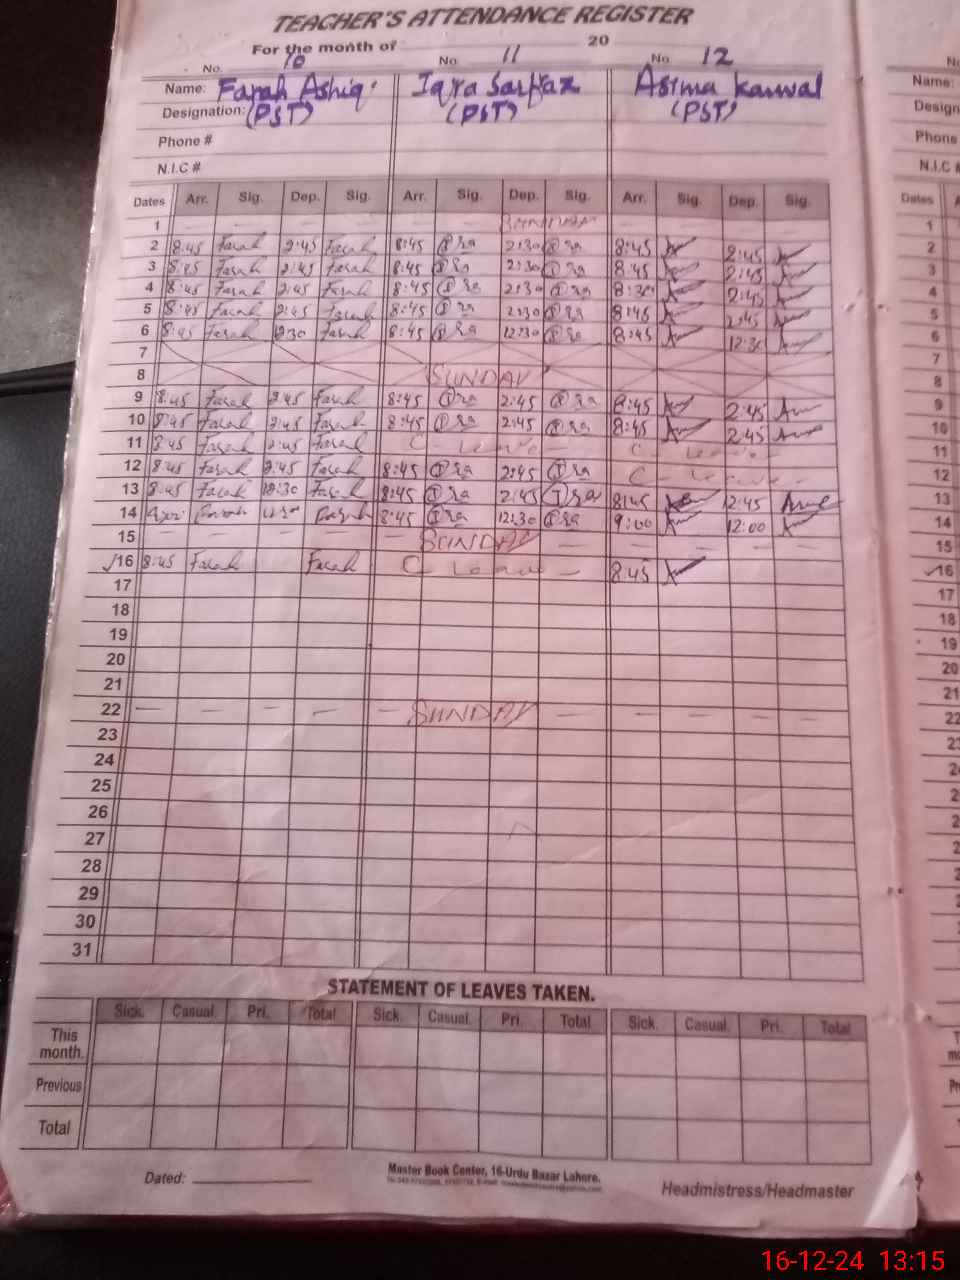 TEACHER'S ATTENDANCE REGISTER
For the month of 20
No. 10 No. 11 No. 12
Name: Farah Ashiq Iqra Sarfraz Asima Kanwal
Designation: (PST) (PST) (PST)
Phone #
N.I.C #
Dates Arr. Sig. Dep. Sig. Arr. Sig. Dep. Sig. Arr. Sig. Dep. Sig.
1 SUNDAY
2 8:45 Farah 2:45 Farah 8:45 Iqra 2:30 Iqra 8:45 2:45
3 8:45 Farah 2:45 Farah 8:45 Iqra 2:30 Iqra 8:45 2:45
4 8:45 Farah 2:45 Farah 8:45 Iqra 2:30 Iqra 8:30 2:45
5 8:45 Farah 2:45 Farah 8:45 Iqra 2:30 Iqra 8:45 2:45
6 8:45 Farah 12:30 Farah 8:45 Iqra 12:30 Iqra 8:45 12:30
7
8 SUNDAY
9 8:45 Farah 2:45 Farah 8:45 Iqra 2:45 Iqra 8:45 2:45
10 8:45 Farah 2:45 Farah 8:45 Iqra 2:45 Iqra 8:45 2:45
11 8:45 Farah 2:45 Farah C - Leave - C - Leave -
12 8:45 Farah 2:45 Farah 8:45 Iqra 2:45 Iqra C - Leave -
13 8:45 Farah 12:30 Farah 8:45 Iqra 2:45 Iqra 8:45 2:45
14 Farah Farah 8:45 Iqra 12:30 Iqra 9:00 12:00
15 SUNDAY
16 8:45 Farah Farah C - Leave - 8:45
17
18
19
20
21
22 SUNDAY
23
24
25
26
27
28
29
30
31
STATEMENT OF LEAVES TAKEN.
Sick. Casual. Pri. Total Sick. Casual. Pri. Total Sick. Casual. Pri. Total
This month.
Previous
Total
Dated:
Master Book Center, 16-Urdu Bazar Lahore.
Headmistress/Headmaster
No
Name:
Design
Phone
N.I.C #
Dates
1
2
3
4
5
6
7
8
9
10
11
12
13
14
15
16
17
18
19
20
21
22
16-12-24 13:15